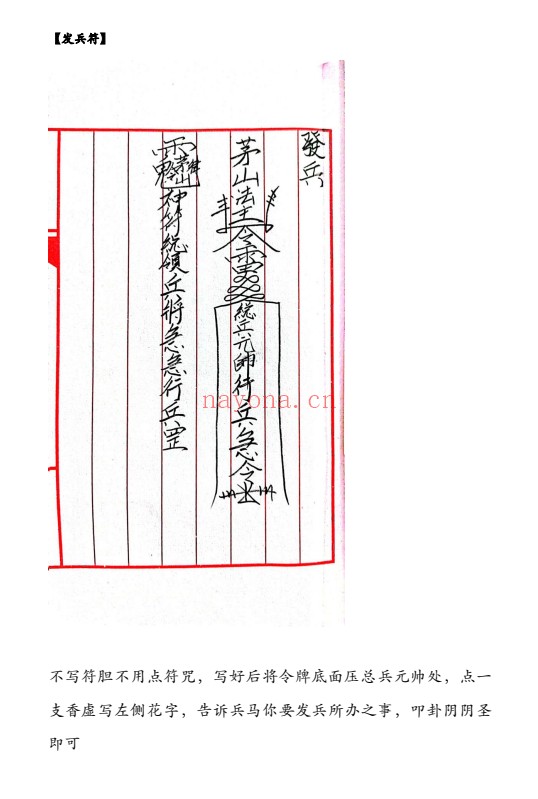 【发兵符】
發兵
茅山法主令雷
總兵元帥行兵急令
神符總領兵將急急行兵罡
nayona.cn
不写符胆不用点符咒，写好后将令牌底面压总兵元帅处，点一
支香虚写左侧花字，告诉兵马你要发兵所办之事，叩卦阴阴圣
即可